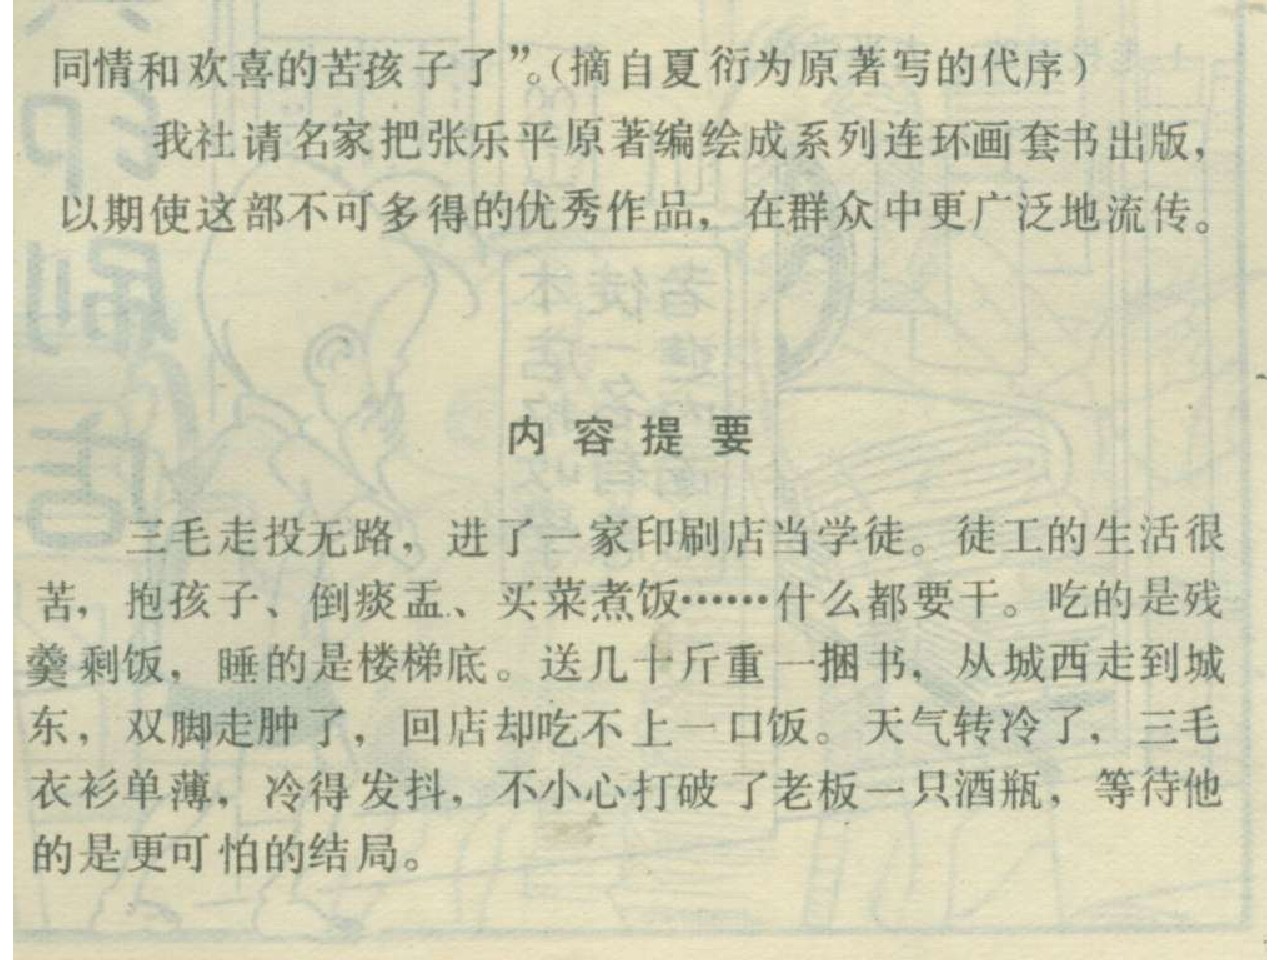 同情和欢喜的苦孩子了”。(摘自夏衍为原著写的代序)
我社请名家把张乐平原著编绘成系列连环画套书出版，
以期使这部不可多得的优秀作品，在群众中更广泛地流传。
内容提要
三毛走投无路，进了一家印刷店当学徒。徒工的生活很
苦，抱孩子、倒痰盂、买菜煮饭……什么都要干。吃的是残
羹剩饭，睡的是楼梯底。送几十斤重一捆书，从城西走到城
东，双脚走肿了，回店却吃不上一口饭。天气转冷了，三毛
衣衫单薄，冷得发抖，不小心打破了老板一只酒瓶，等待他
的是更可怕的结局。